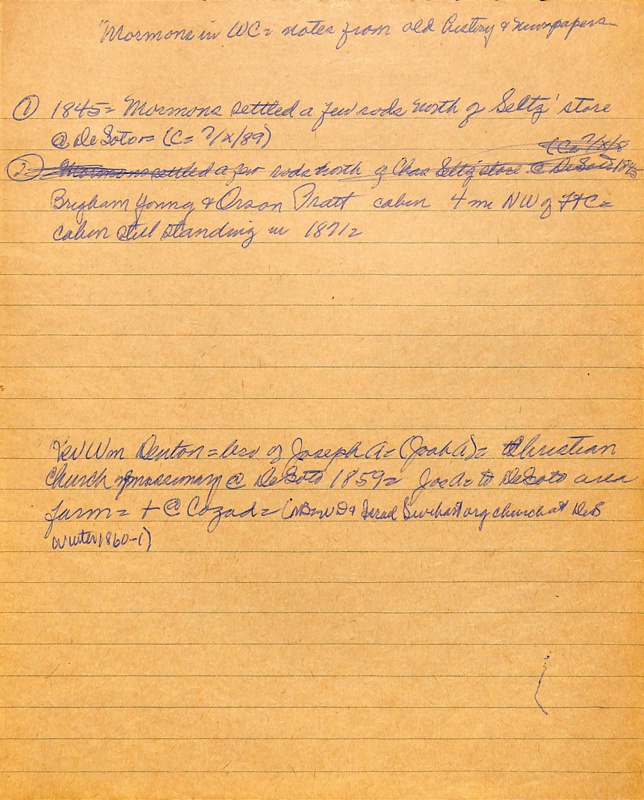 "Mormons in WC = notes from old history & newspapers
① 1845 = Mormons settled a few rods north of Seltz' store
@ DeSoto = (C = ?/x/89)
(C = ?/x/8
② Mormons settled a few rods north of Chas Seltz' store @ DeSoto 1845
Brigham Young & Orson Pratt cabin 4 mi NW of FtC =
cabin still standing in 1871 =
Rev Wm Denton = bro of Joseph A = (Josh A) = Christian
Church missionary @ DeSoto 1859 = Jos A = to DeSoto area
farm = + @ Cozad = ( & org church at DeS
winter 1860-1)